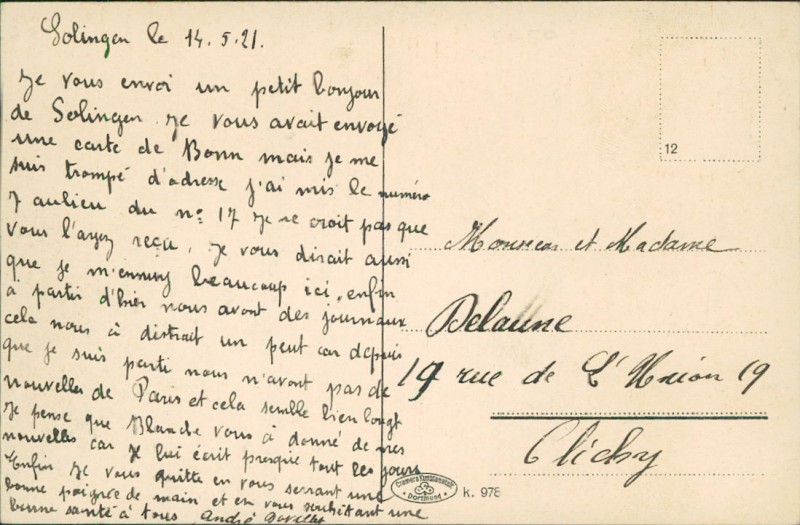 Solingen le 14.5.21.
Je vous envoi un petit bonjour
de Solingen. Je vous avait envoyé
une carte de Bonn mais je me
suis trompé d'adresse j'ai mis le numéro
7 aulieu du nº 17 Je ne croit pas que
vous l'ayez reçu. Je vous disait aussi
que je m'ennuy beaucoup ici, enfin
à partir d'hier nous avont des journaux
cela nous à distrait un peut car depuis
que je suis parti nous n'avont pas de
nouvelles de Paris et cela semble bien longt
Je pense que Blanche vous à donné de mes
nouvelles car Je lui écrit presque tout les jours
Enfin Je vous quitte en vous serrant une
bonne poignée de main et en vous souhaittant une
bonne santé à tous André
12
Monsieur et Madame
Delaune
19 rue de L'Union 19
Clichy
Cramers Kunstanstalt
Dortmund
K. 978